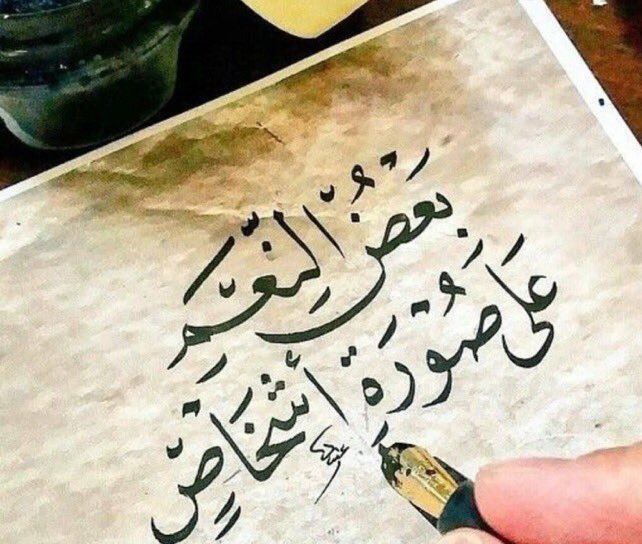 بَعْضُ النِّعَمِ
عَلَى صُوْرَةِ أشْخَاصٍ